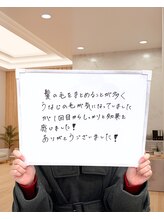 髪の毛をまとめることが多く
うなじの毛が気になっていました
が1回目からしっかりと効果を
感いました!
ありがとうございました!